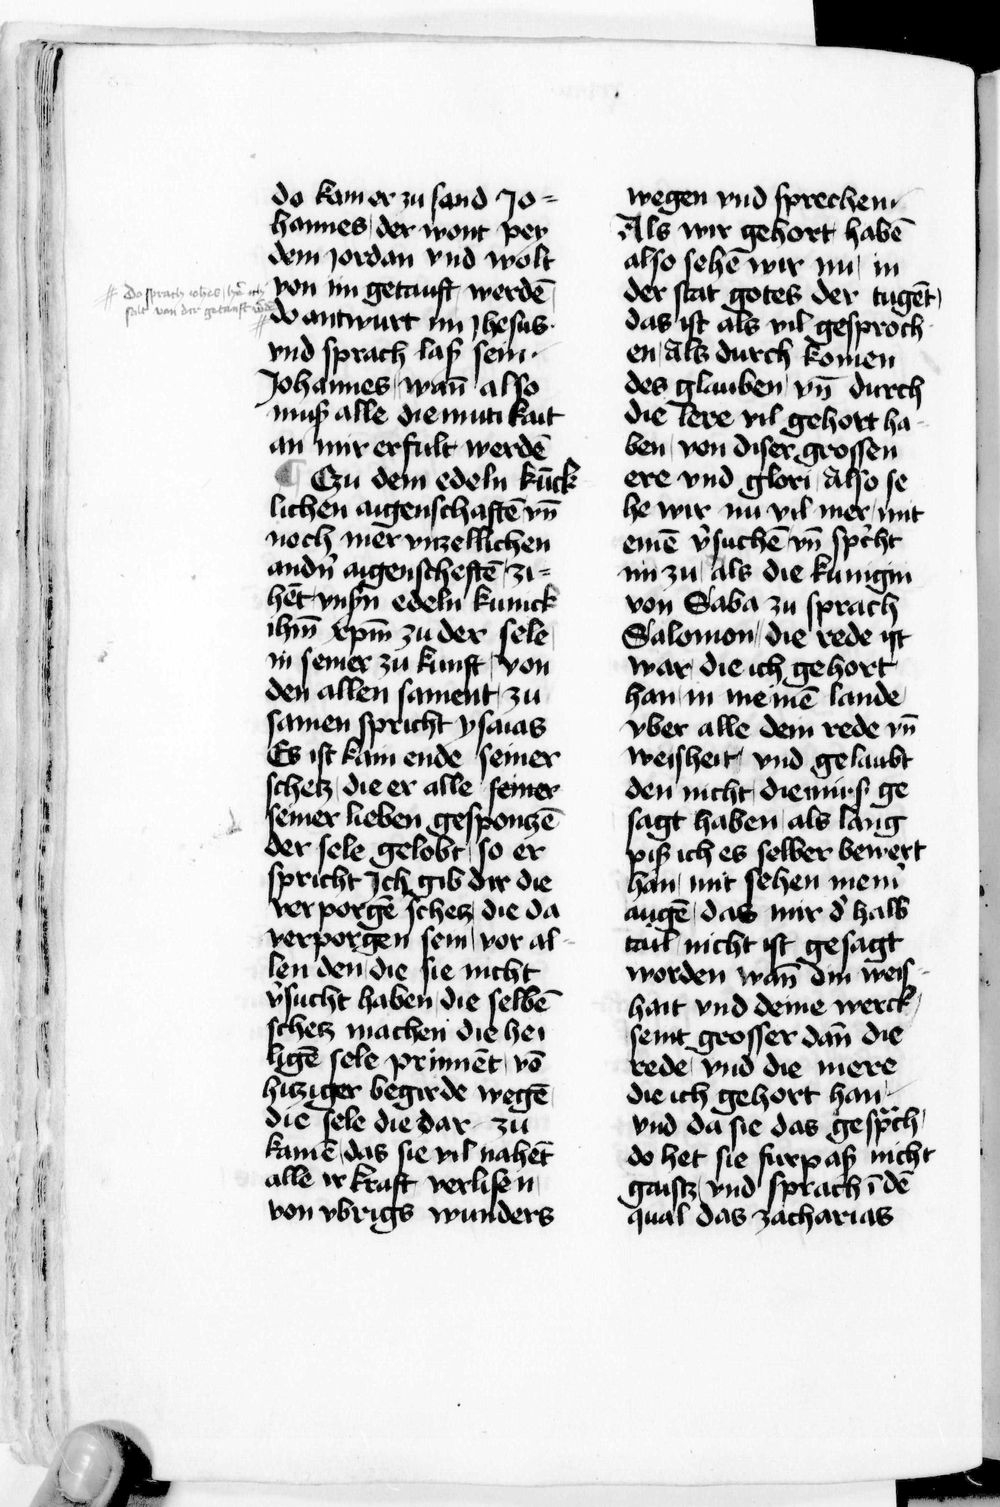 do kam er zu sand Jo=
hannes der wont pey
dem Jordan vnd wolt
von im getauft werdē
do antwurt im Jhesus
vnd sprach laß sein
Johannes wañ also
muß alle diemutikait
an mir erfult werdē
¶ Czu dem edeln kūck
lichen aigenschaftē vñ
noch mēr vnzellichen
andn̄ aigenscheftē zi=
hēt vnßn̄ edeln kunick
ihm̄ xpm̄ zu der sele
in seiner zu kunft von
den allen sament zu
samen spricht ysaias
Es ist kain ende seiner
schetz die er alle seiner
seiner lieben gespontzē
der sele gelobt so er
spricht Ich gib dir die
verporgē schetz die da
verporgen sein vor al=
len den die sie nicht
v̄sucht haben die selbē
schetz machen die hei
ligē sele prinnēt vō
hitziger begirde wegē
die sele die dar zu
kamē das sie vil nahēt
alle ir kraft verlisen
von vbrigs wunders
do sprach iohēs h're ich
solt von dir getauft w'dē
wegen vnd sprechen
Als wir gehort habē
also sehē wir nu in
der stat gotes der tugēt
das ist als vil gesproch
en Als durch komen
des glauben vñ durch
die lere vil gehort ha=
ben von diser grossen
ere vnd glori also se
he wir nu vil mer mit
einē v̄suchē vñ sp'cht
im zu als die kunigin
von Saba zu sprach
Salomon die rede ist
war die ich gehort
han in meinē lande
vber alle dein rede vñ
weisheit vnd gelaubt
den nicht die mirs ge
sagt haben als lang
piß ich es selber bewert
han mit sehen mein'
augē das mir d' halb
tail nicht ist gesagt
worden wañ din weis=
hait vnd deine werck
seint grosser dañ die
rede vnd die mere
die ich gehort han
vnd da sie das gesp'ch
do het sie furpaß nicht
gaistz vnd sprach ī dē
qual das zacharias